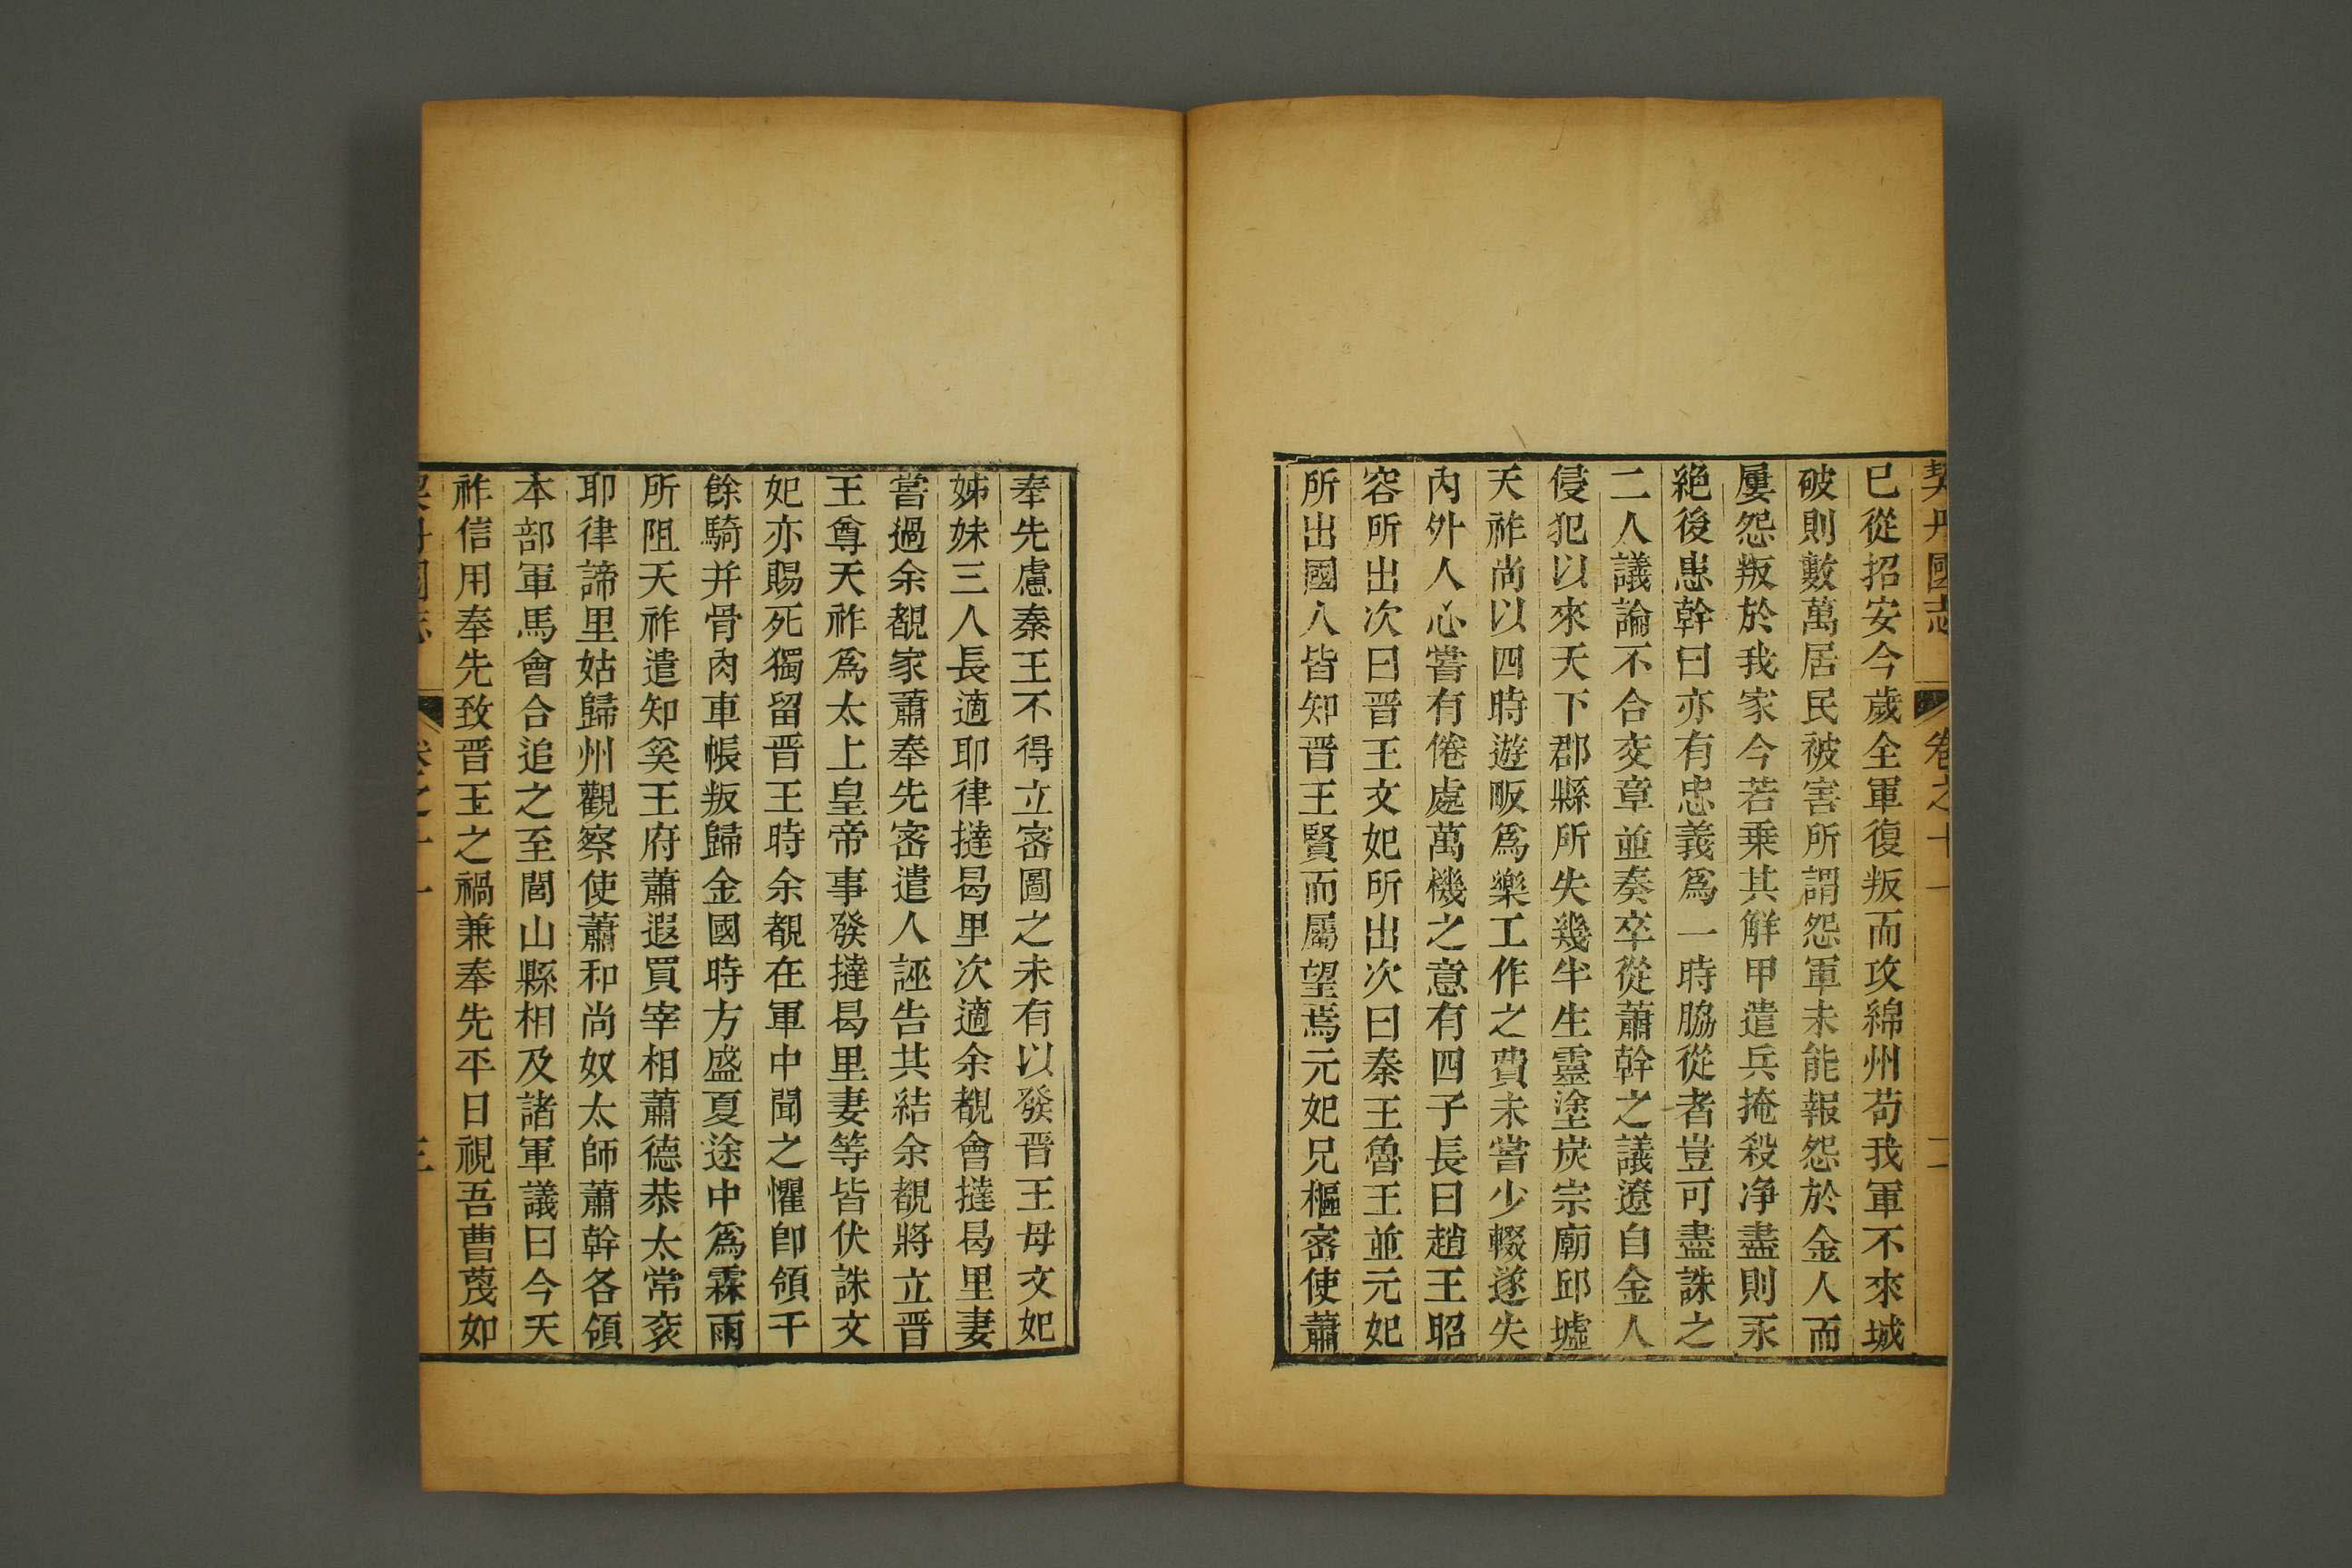 契丹國志 卷之十一 二
已從招安今歲全軍復叛而攻綿州苟我軍不來城
破則數萬居民被害所謂怨軍未能報怨於金人而
屢怨叛於我家今若乗其觧甲遣兵掩殺净盡則永
絶後患幹曰亦有忠義爲一時脇從者豈可盡誅之
二人議論不合交章並奏卒從蕭幹之議遼自金人
侵犯以來天下郡縣所失幾半生靈塗炭宗廟邱墟
天祚尚以四時遊畋爲樂工作之費未嘗少輟遂失
内外人心嘗有倦處萬機之意有四子長曰趙王昭
容所出次曰晋王文妃所出次曰秦王魯王並元妃
所出國人皆知晋王賢而屬望焉元妃兄樞宻使蕭
奉先慮秦王不得立宻圖之未有以發晋王母文妃
姊妹三人長適耶律撻曷里次適余覩會撻曷里妻
嘗過余覩家蕭奉先宻遣人誣告其結余覩將立晋
王尊天祚爲太上皇帝事發撻曷里妻等皆伏誅文
妃亦賜死獨留晋王時余覩在軍中聞之懼卽領千
餘騎并骨肉車帳叛歸金國時方盛夏途中爲霖雨
所阻天祚遣知奚王府蕭遐買宰相蕭德恭太常衮
耶律諦里姑歸州觀察使蕭和尚奴太師蕭幹各領
本部軍馬會合追之至閭山縣相及諸軍議曰今天
祚信用奉先致晋王之禍兼奉先平日視吾曹蔑如
契丹國志 卷之十一 三